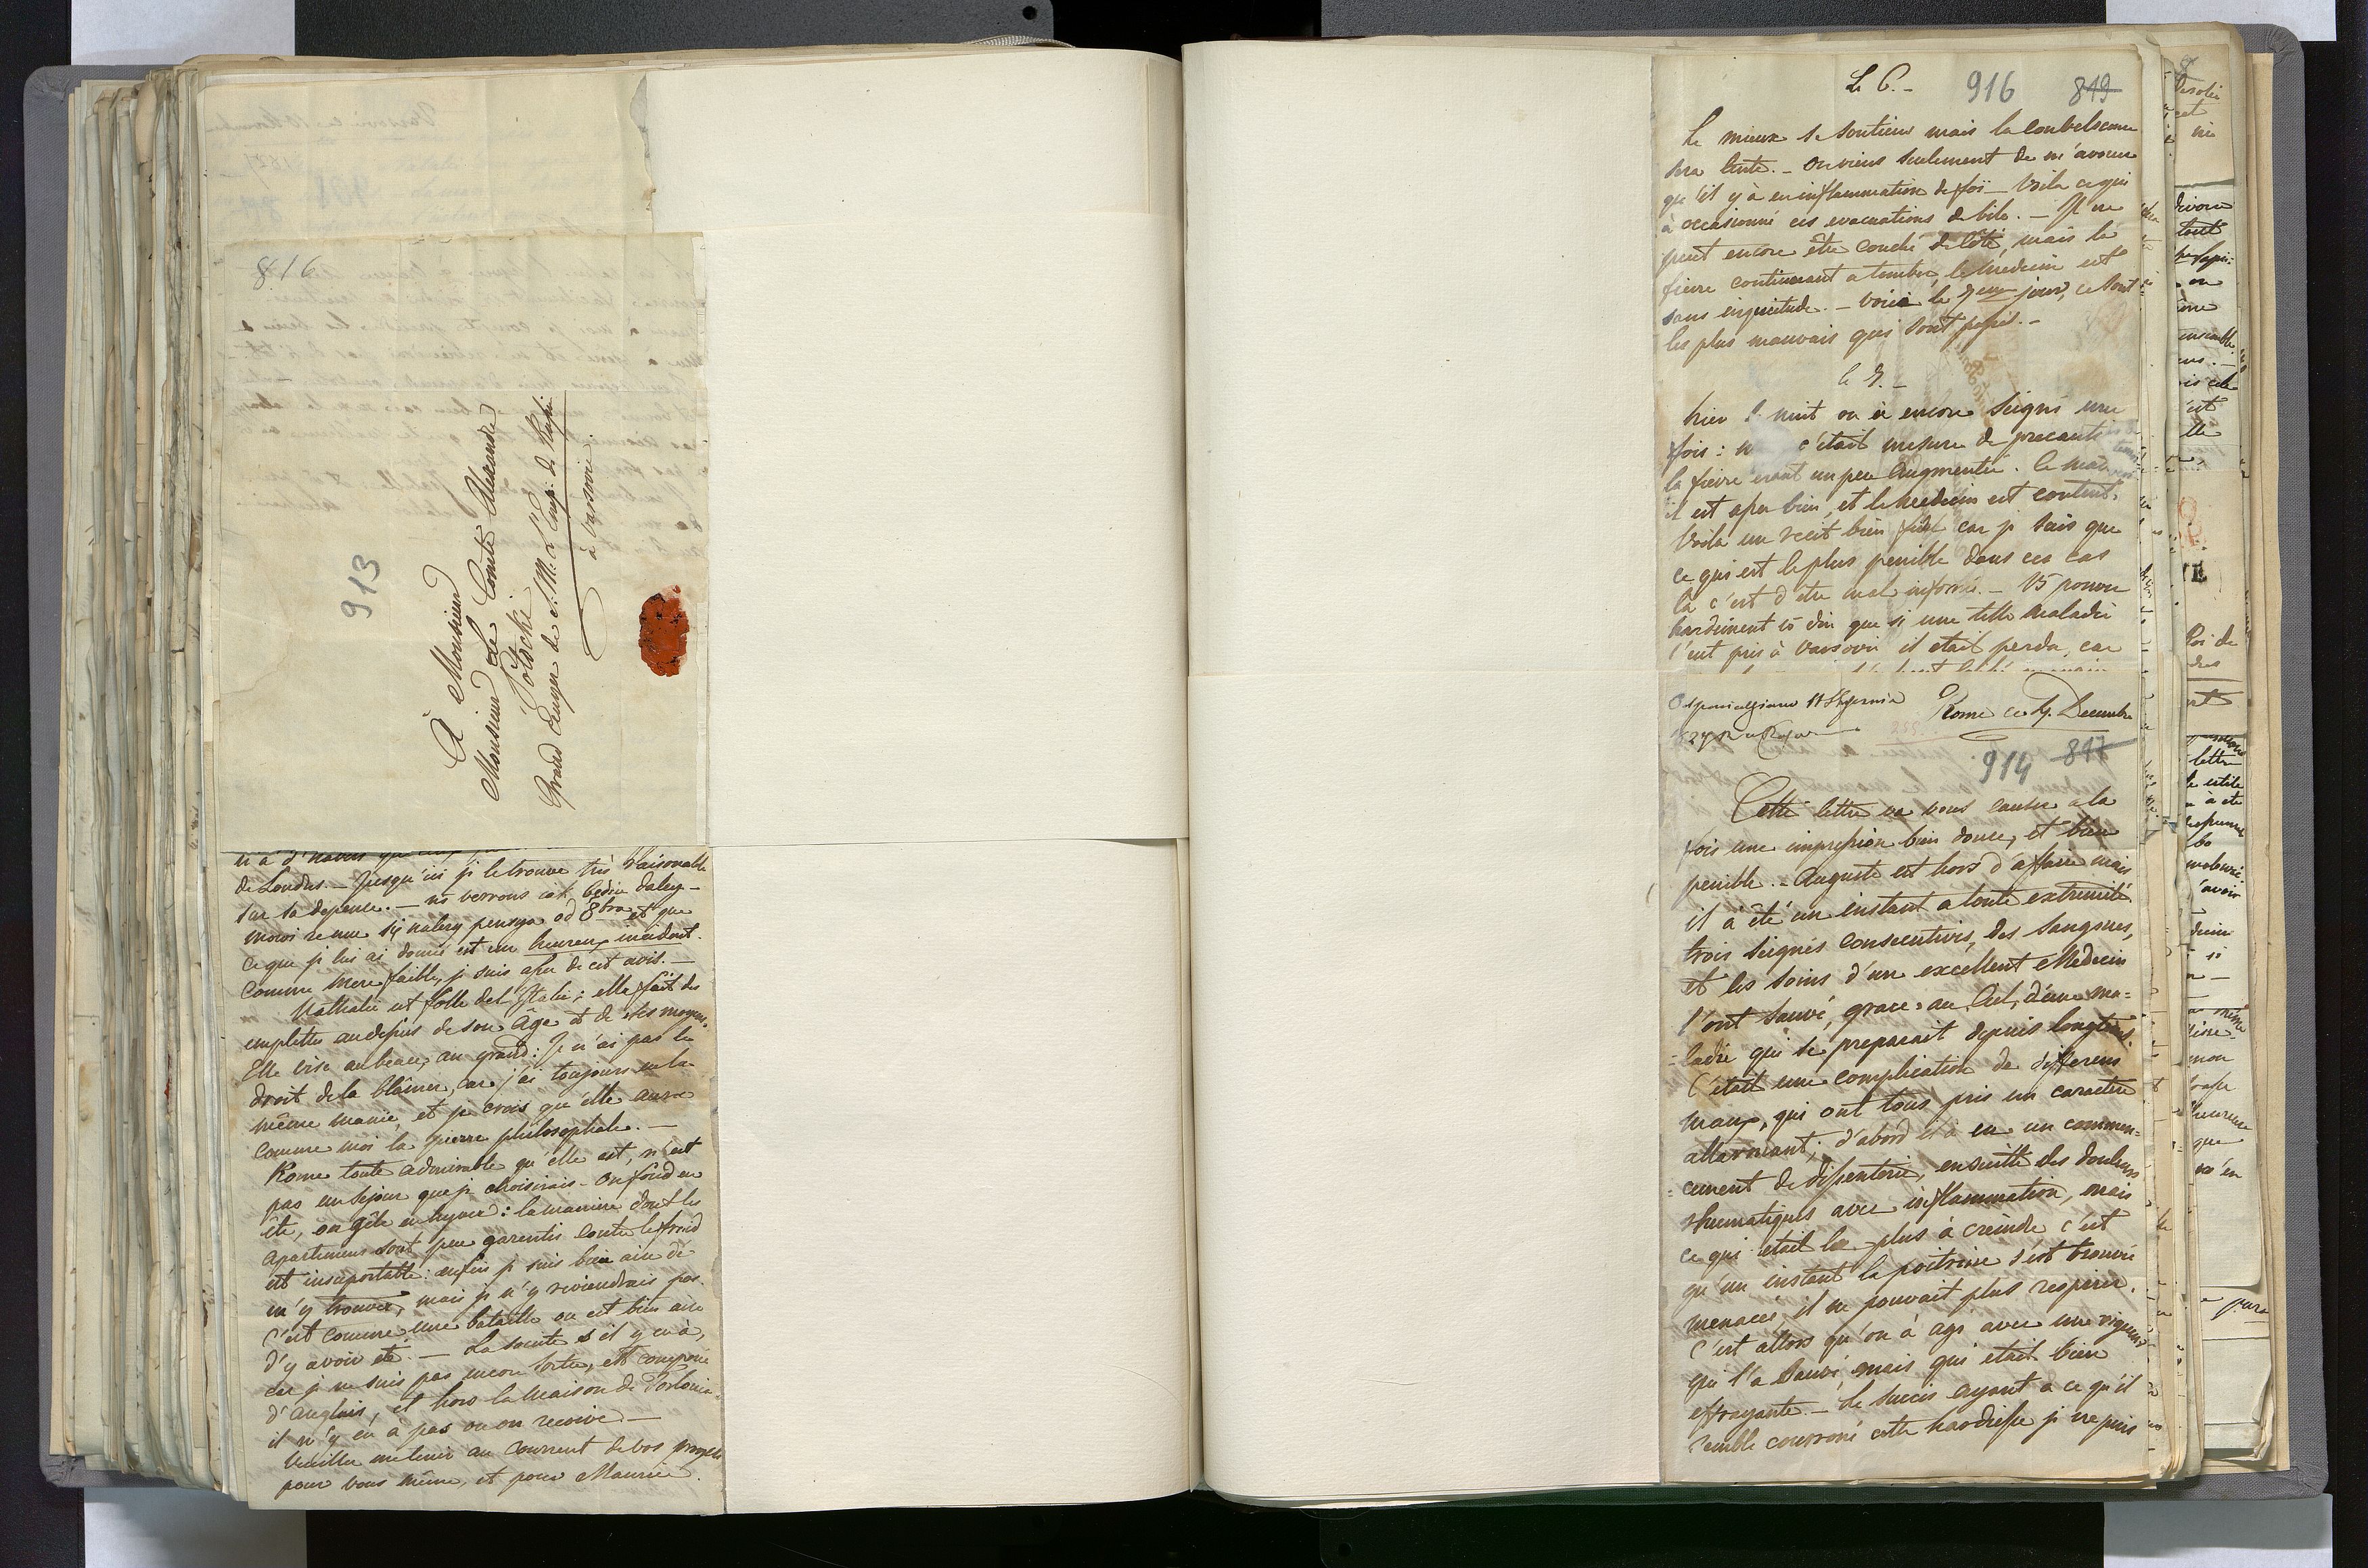 816
913
À Monsieur
Monsieur Le Comte Alexandre
Potocki
Grand Ecuyer de S. M. L'Emp: de Russie
à Varsovie.
de Londres. — Jusqu'ici je le trouve très raisonable
sur sa depense. — ns verrons
ce que je lui ai donné est un heureux incident.
Comme Mere faible, je suis assez de cet avis. —
Nathalie est folle de l'Italie; elle fait des
emplettes audessus de son âge et de ses moyens.
Elle vise au beau, au grand: Je n'ai pas le
droit de la blâmer, car j'ai toujours eu la
même manie, et je crois qu'elle aura
comme moi la pierre philosophale. —
Rome toute admirable qu'elle est, n'est
pas un sejour que je choisirais — On fond en
été, on gêle en hyver: la maniere dont les
apartemens sont peu garentis contre le froid
est insuportable: enfin je suis bien aise de
m'y trouver, mais je n'y reviendrais pas.
C'est comme une bataille on est bien aise
d'y avoir été. — La societé s'il y en à,
car je ne suis pas encore sortie, est composée
d'anglais, et hors la maison de Torlonia
il n'y en à pas ou on recoive —
Veuillez me tenir au courrant de vos projets
pour vous même, et pour Maurice.
Le 6. —
916 819
Le mieux se soutient mais la convalescence
sera lente. — On vient seulement de m'avouer
qu'il y à eu inflammation de foi — Voila ce qui
à occasionné ces evacuations de bile. — Il ne
peut encore être couché de côté, mais la
fievre continuant a tomber, le Medecin est
sans inquietude. — Voici le 7eme jour, ce sont
les plus mauvais qui sont passés. —
le 7. —
hier nuit on à encore seigné une
fois: c'était mesure de precaution
la fievre etant un peu augmentée. Ce matin
il est assez bien, et le Medecin est content.
Voila un recit bien fidel car je sais que
ce qui est le plus penible dans ces cas
là c'est d'être mal informé. — Vs pouvez
hardiment vs dire que si une telle maladie
l'eut pris à Varsovie il etait perdu, car
Rome ce 4. Decembre
914 817
Cette lettre va vous causer a la
fois une impression bien douce, et bien
penible. — Auguste est hors d'affaire mais
il à été un instant a toute extremité
trois seignés consecutives, des sangsues,
et les soins d'un excellent Medecin
l'ont sauvé, grace au Ciel, d'une ma=
=ladie qui se preparait depuis longtems.
C'était une complication de differens
maux, qui ont tous pris un caractere
allarmant; d'abord il à eu un commen=
=cement de dissenterie, ensuitte des douleurs
rheumatiques avec inflammation, mais
ce qui etait le plus à creindre c'est
qu'un instant la poitrine s'est trouvée
menacée, il ne pouvait plus respirer.
C'est allors qu'on à agi avec une vigueur
qui l'a sauvé, mais qui etait bien
effrayante. — Le succès ayant a ce qu'il
semble couronné cette hardiesse je ne puis